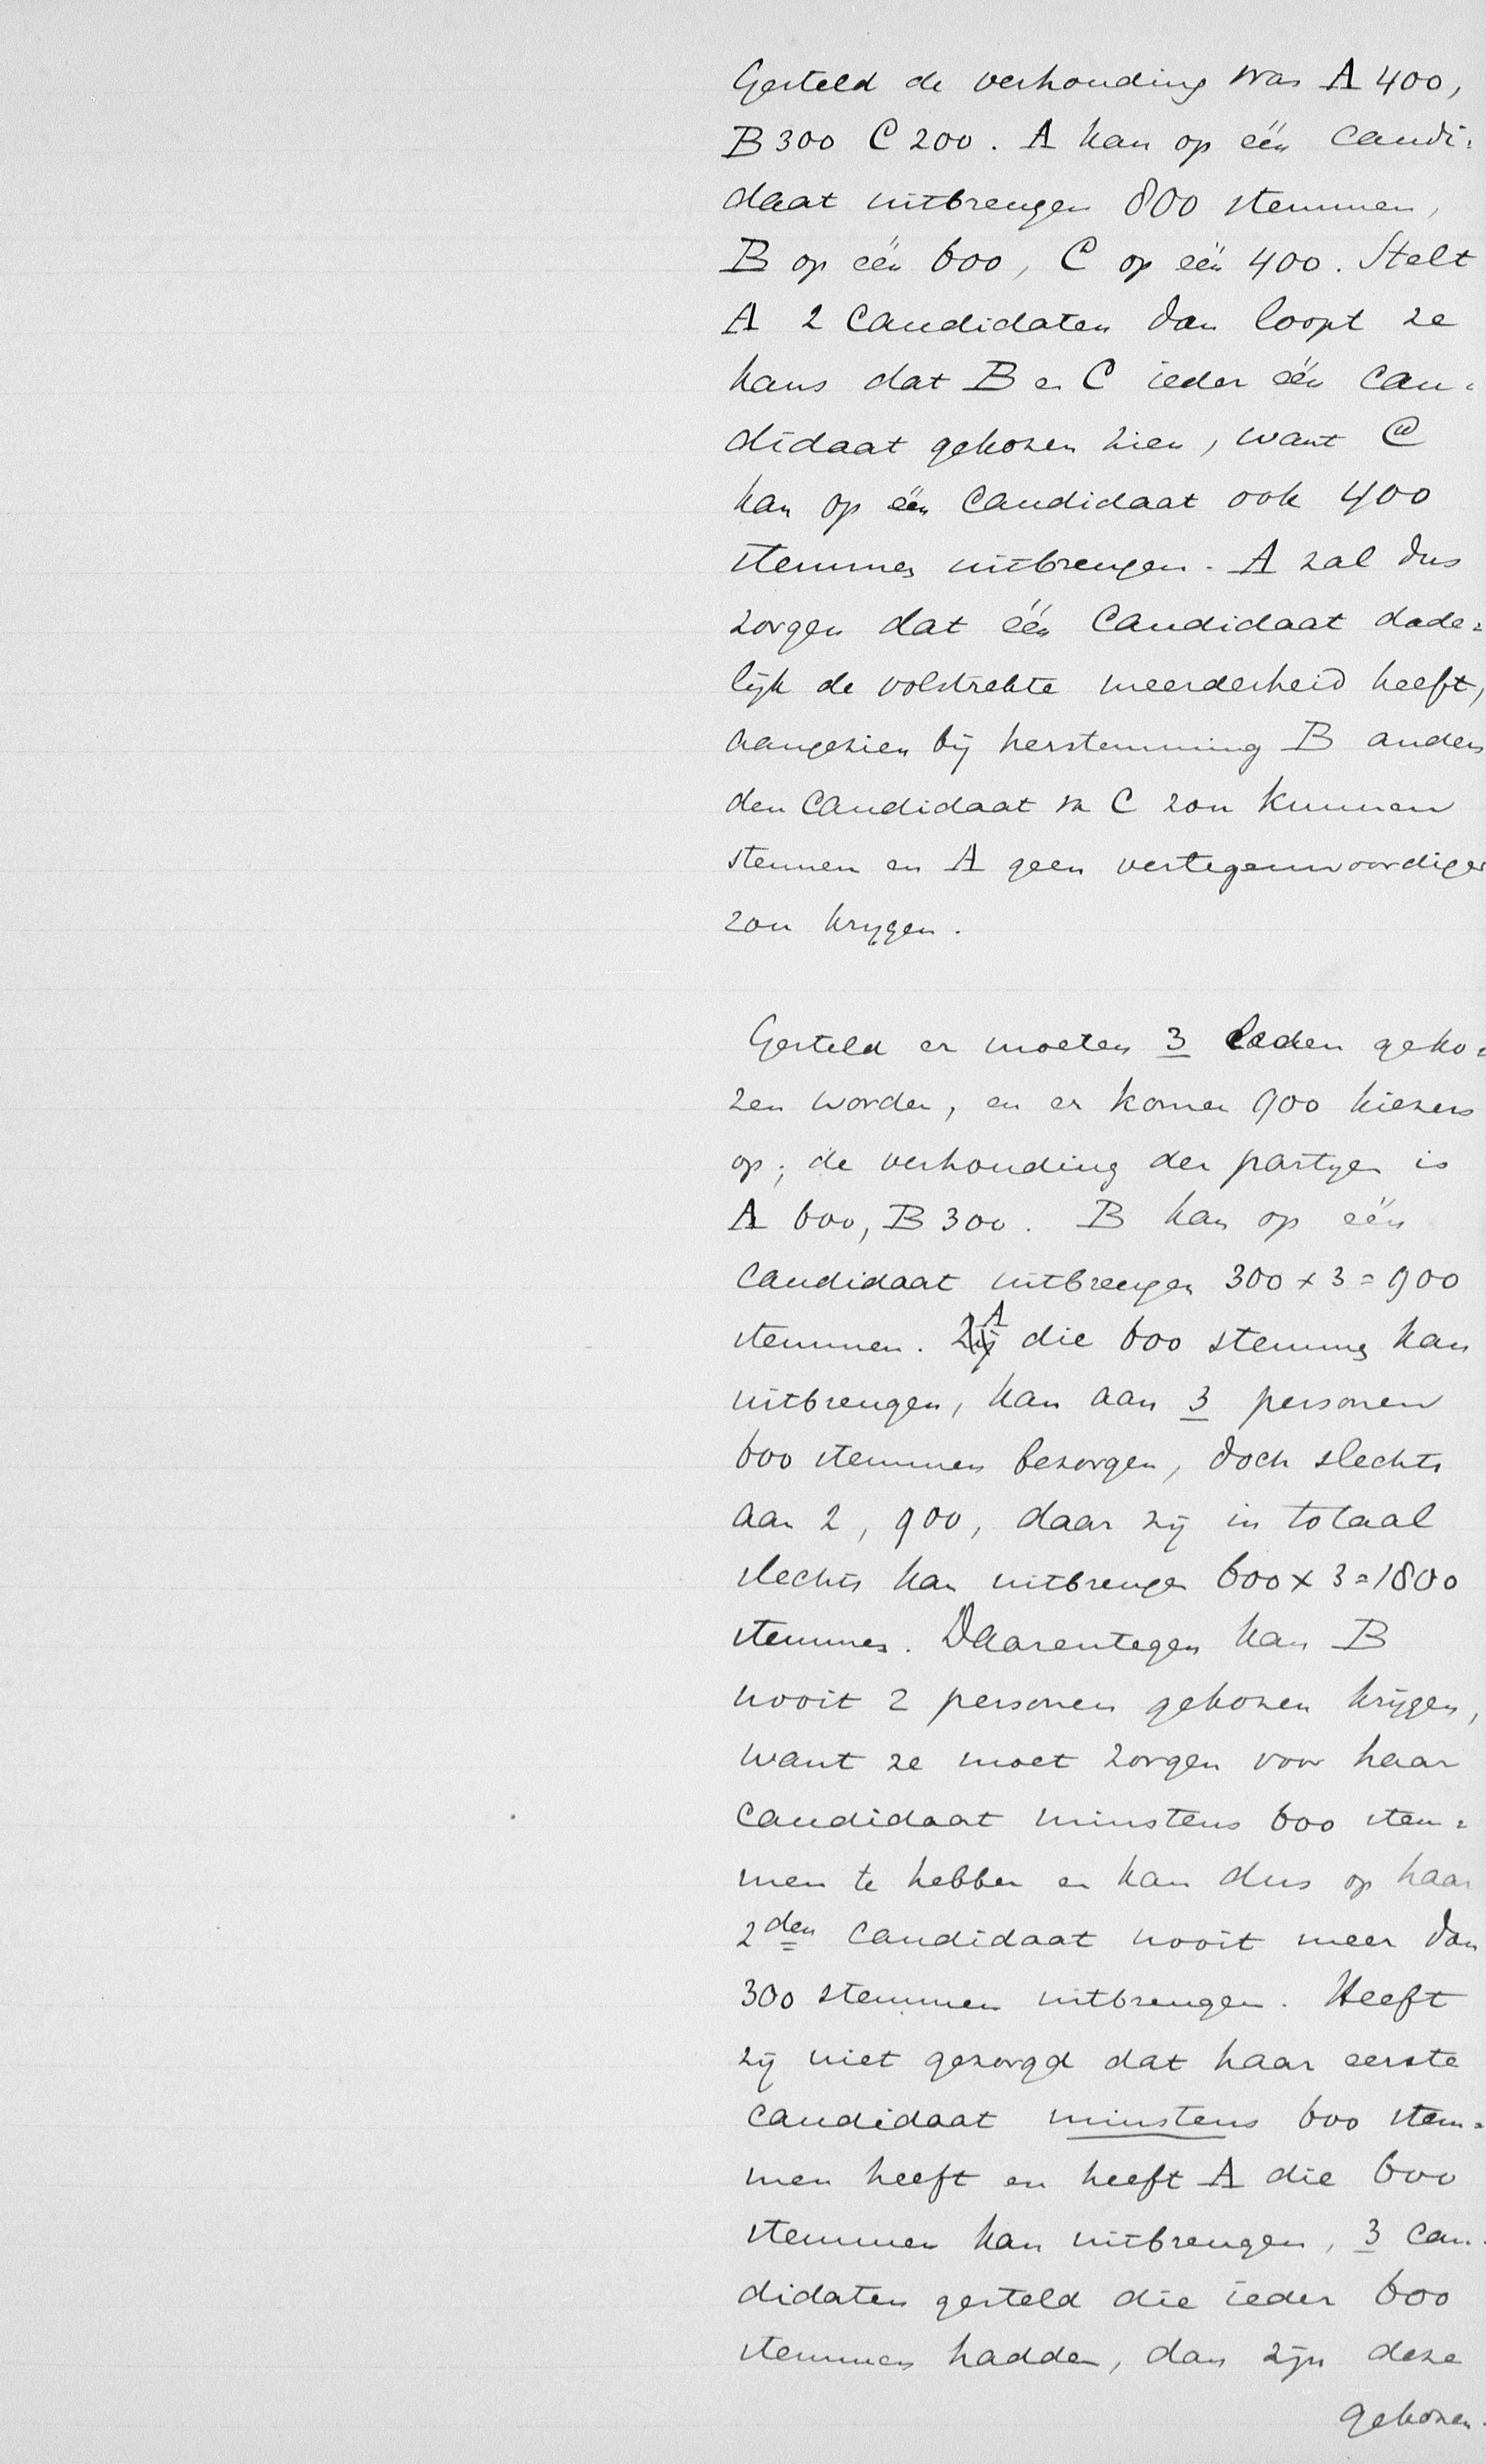 Gesteld de verhouding was A 400,
B 300 C 200. A kan op één candi=
daat uitbrengen 800 stemmen,
B op één 600, C op één 400. Stelt
A 2 candidaten dan loopt ze
kans dat B en C ieder één can=
didaat gekozen zien, want C
kan op één candidaat ook 400
stemmen uitbrengen. A zal dus
zorgen dat één candidaat dade=
lijk de volstrekte meerderheid heeft,
aangezien bij herstemming B anders
den candidaat v. C zou kunnen
stemmen en A geen vertegenwoordiger
zou krijgen.
Gesteld er moeten 3 leden geko=
zen worden, en er komen 900 kiezers
op; de verhouding der partijen is
A 600, B 300. B kan op één
candidaat uitbrengen 300 x 3 = 900
stemmen. A die 600 stemmen kan
uitbrengen, kan aan 3 personen
600 stemmen bezorgen, doch slechts
aan 2, 900, daar zij in totaal
slechts kan uitbrengen 600 x 3 = 1800
stemmen. Daarentegen kan B
nooit 2 personen gekozen krijgen,
want ze moet zorgen voor haar
candidaat minstens 600 stem=
men te hebben en kan dus op haar
2den candidaat nooit meer dan
300 stemmen uitbrengen. Heeft
zij niet gezorgd dat haar eerste
candidaat minstens 600 stem=
men heeft en heeft A die 600
stemmen kan uitbrengen, 3 can=
didaten gesteld die ieder 600
stemmen hadden, dan zijn deze
gekozen.